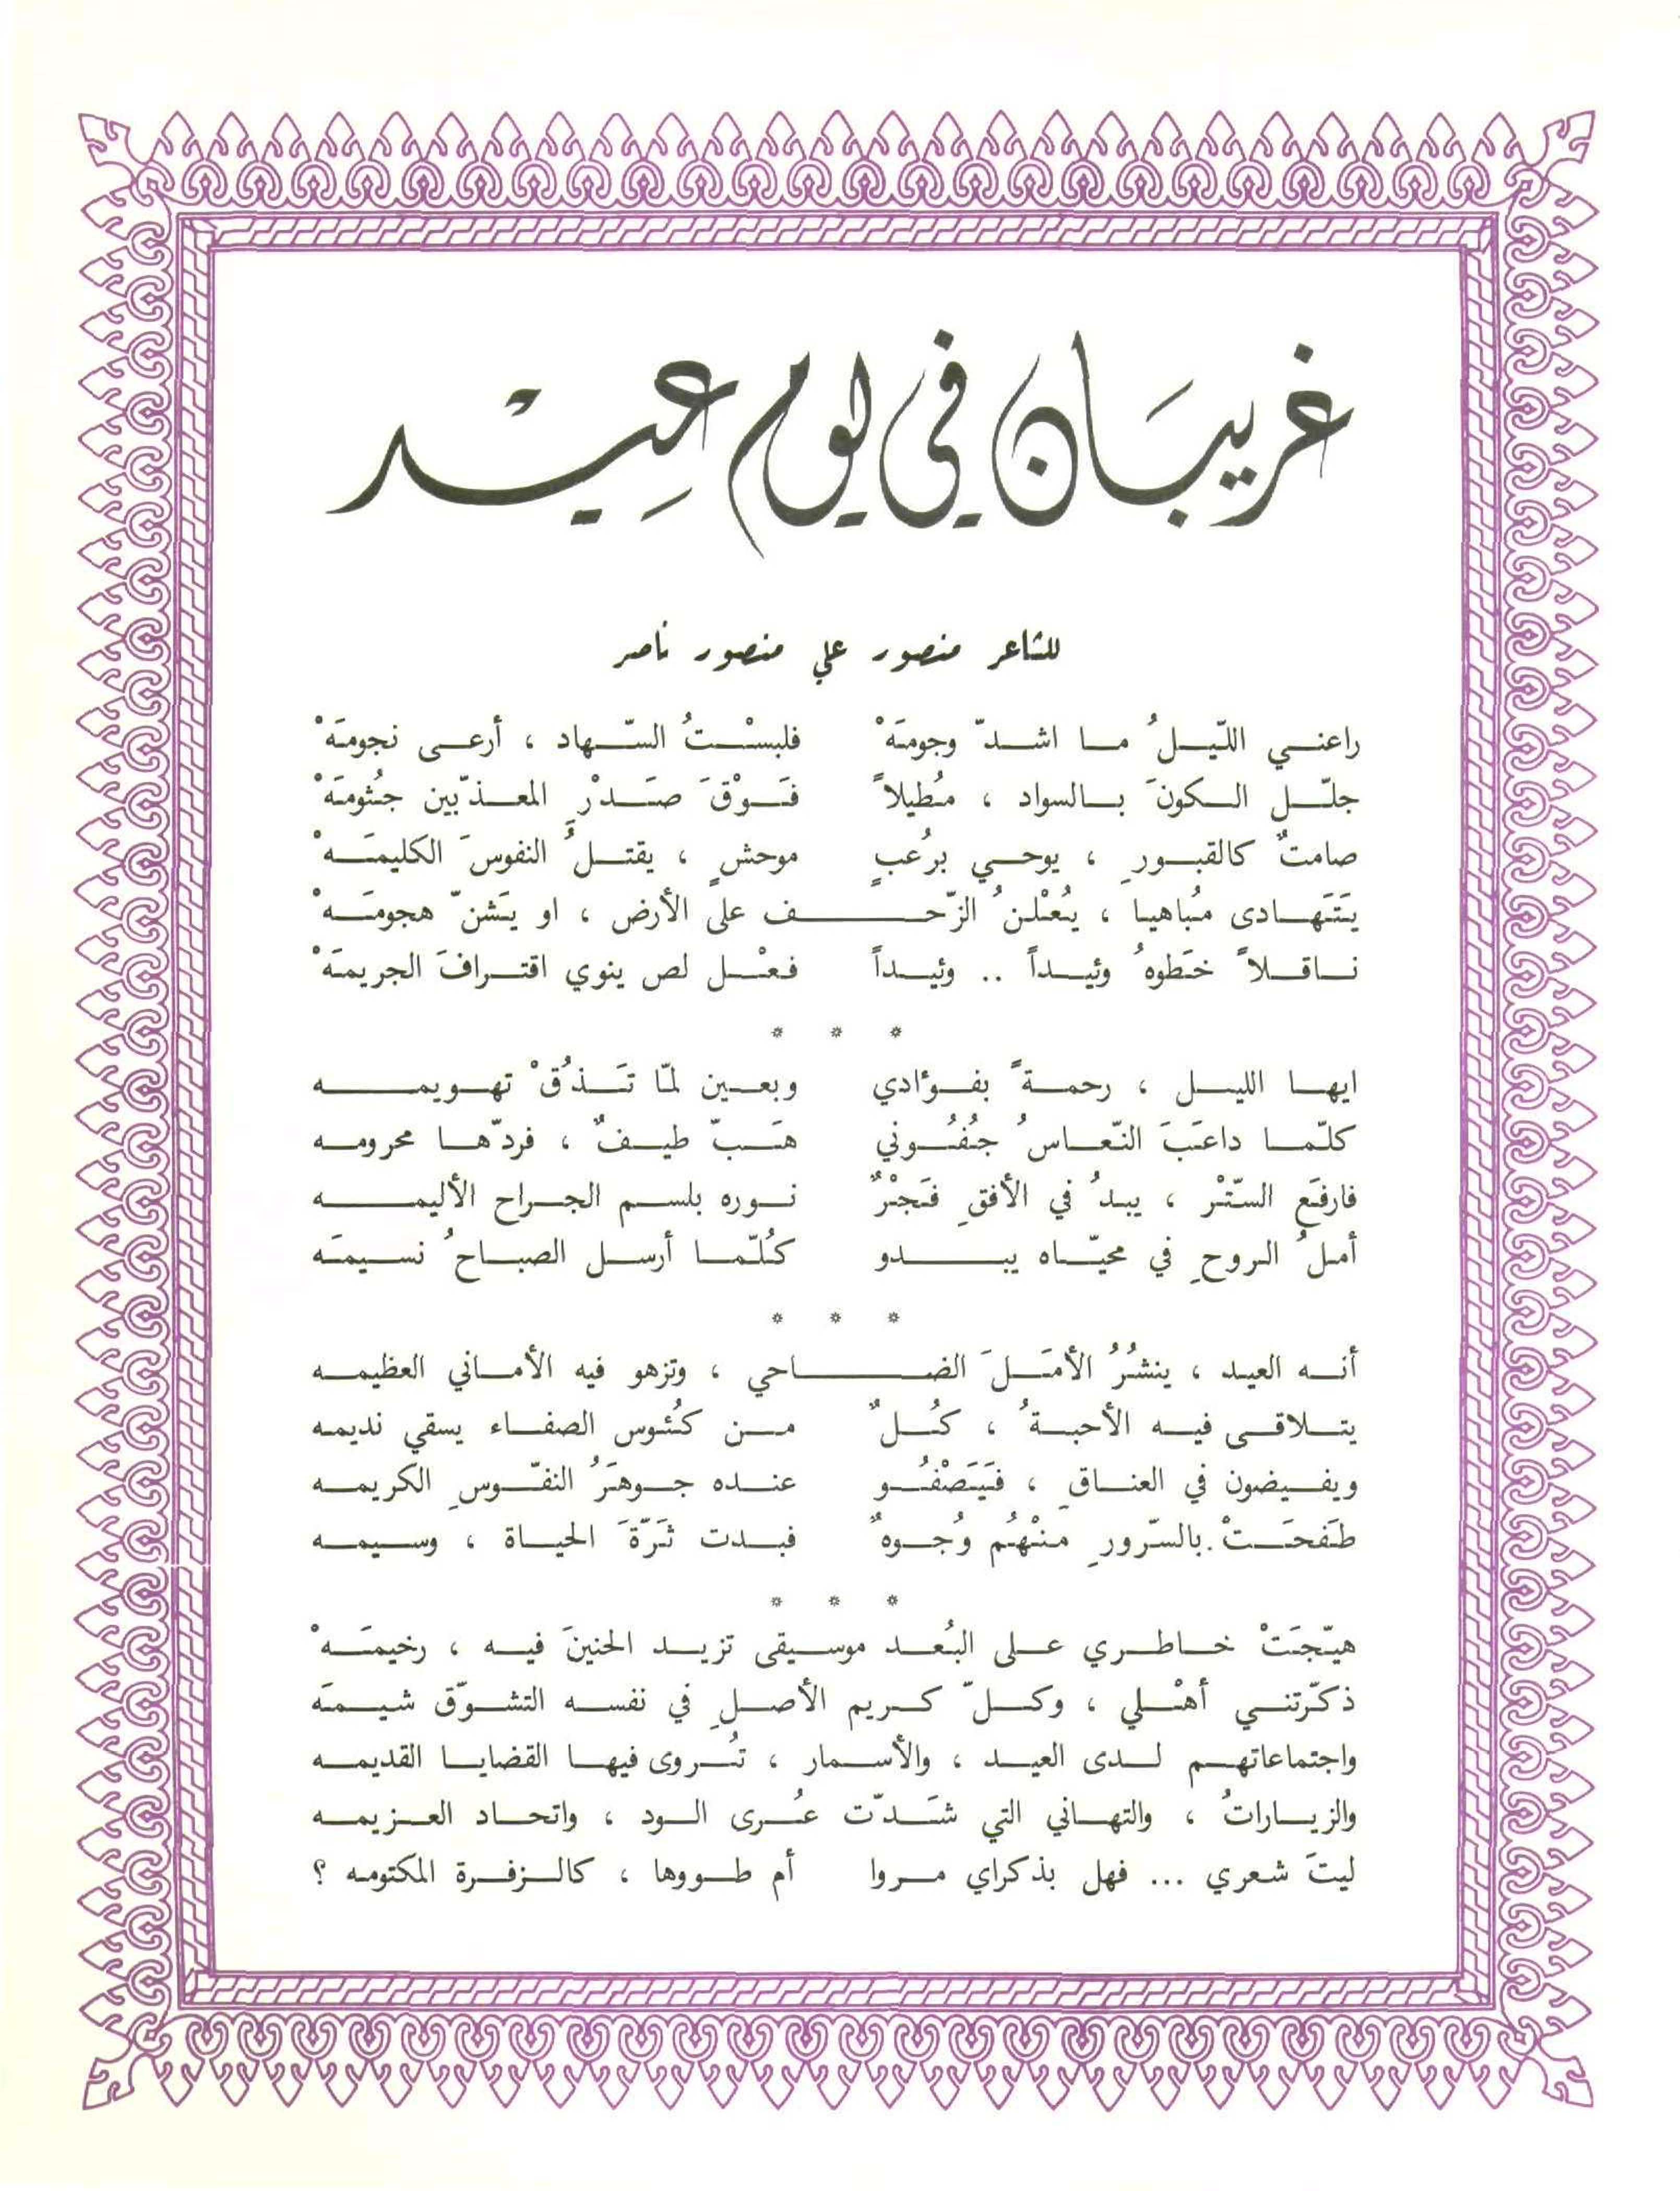 غريبَان في يوم عِيْد
للشاعر منصور علي منصور ناصر
راعني اللّيلُ ما اشدّ وجومَهْ فلبسْتُ السّهاد ، أرعى نجومَهْ
جلّل الكونَ بالسواد ، مُطيلاً فَوْقَ صَدْرِ المعذّبين جُثومَهْ
صامتٌ كالقبورِ ، يوحي برُعبٍ موحشٍ ، يقتلُ النفوسَ الكليمَهْ
يَتَهادى مُباهيا ، يُعْلنُ الزّحف على الأرض ، او يَشنّ هجومَهْ
ناقلاً خَطوهُ وئيداً .. وئيداً فعْل لص ينوي اقترافَ الجريمَهْ
* * *
ايها الليل ، رحمةً بفؤادي وبعين لمّا تَذُقْ تهويمه
كلّما داعَبَ النّعاسُ جُفُوني هَبّ طيفٌ ، فردّها محرومه
فارفَع السّتْر ، يبدُ في الأفقِ فَجْرٌ نوره بلسم الجراح الأليمه
أملُ الروحِ في محيّاه يبدو كُلّما أرسل الصباحُ نسيمَه
* * *
أنه العيد ، ينشُرُ الأمَلَ الضاحي ، وتزهو فيه الأماني العظيمه
يتلاقى فيه الأحبةُ ، كُلٌ من كُئوس الصفاء يسقي نديمه
ويفيضون في العناقِ ، فَيَصْفُو عنده جوهَرُ النفّوسِ الكريمه
طَفحَتْ بالسّرورِ منْهُم وُجوهٌ فبدت ثَرّةَ الحياة ، وسيمه
* * *
هيّجَتْ خاطري على البُعد موسيقى تزيد الحنينَ فيه ، رخيمَهْ
ذكّرتني أهْلي ، وكلّ كريم الأصلِ في نفسه التشوّق شيمَه
واجتماعاتهم لدى العيد ، والأسمار ، تُروى فيها القضايا القديمه
والزياراتُ ، والتهاني التي شَدّت عُرى الود ، واتحاد العزيمه
ليتَ شعري ... فهل بذكراي مروا أم طووها ، كالزفرة المكتومه ؟